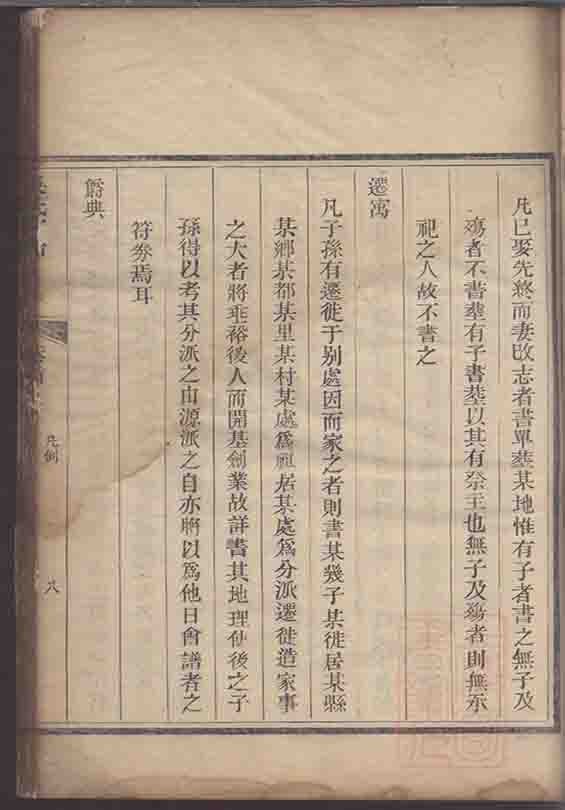 凡已娶先終而妻改志者書單塟某地惟有子者書之無子及
殤者不書塟有子書塟以其有祭主也無子及殤者則無承
祀之人故不書之
遷寓
凡子孫有遷徙于别處因而家之者則書某幾子某徙居某縣
某鄉某都某里某村某處爲祖居某處爲分派遷徙造家事
之大者將垂裕後人而開基創業故詳書其地理使後之子
孫得以考其分派之由源派之自亦將以爲他日會譜者之
符券焉耳
爵典
凡例
八